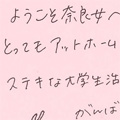 ようこそ奈良女へ
とってもアットホーム
ステキな大学生活
がんば